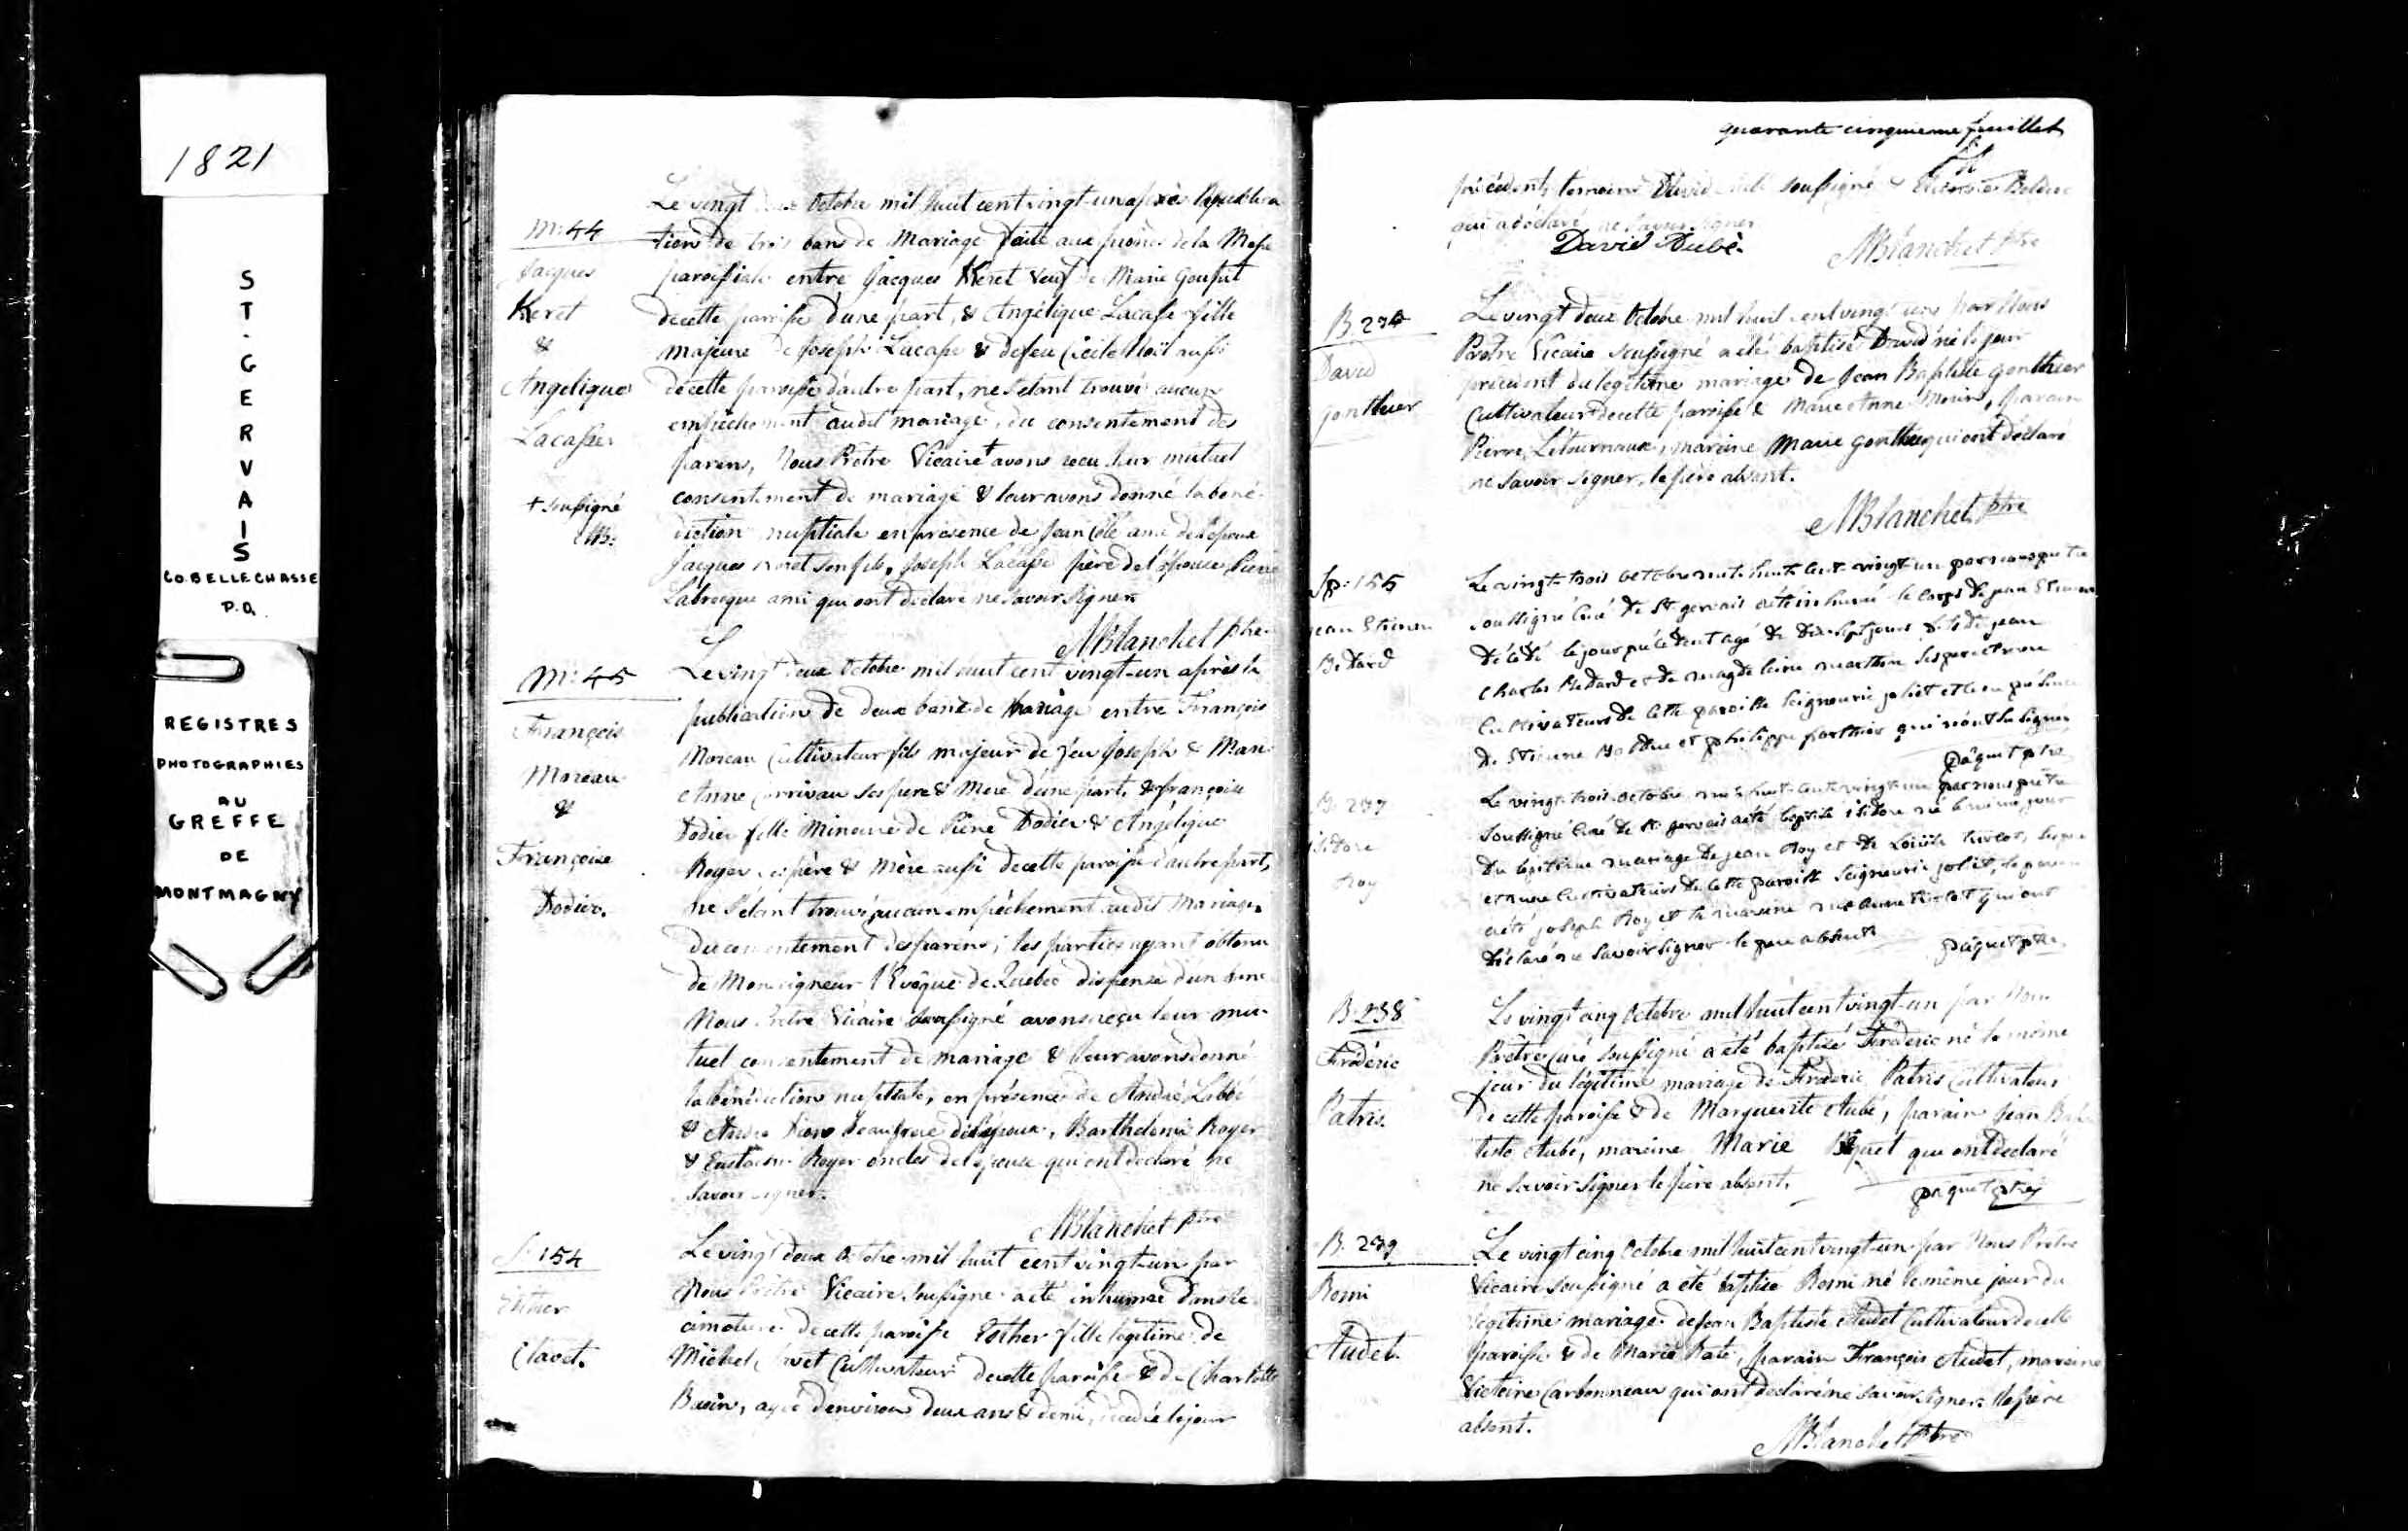 1821
ST. GERVAIS
CO. BELLECHASSE
P.Q.
REGISTRES
PHOTOGRAPHIES
AU
GREFFE
DE
MONTMAGNY
M: 44
Jacques
Keret
&
Angelique
Lacasse
+ soussigné
MB:
Le vingt deux Octobre mil huit cent vingt-un après la publica
tion de trois bans de Mariage faite aux prônes de la Messe
paroissiale entre Jacques Keret Veuf de Marie Goupit
de cette paroisse d'une part, & Angélique Lacasse fille
majeure de Joseph Lacasse & de feu Cécile Noël aussi
de cette paroisse d'autre part, ne s'étant trouvé aucun
empêchement audit mariage, du consentement des
parens, Nous Prêtre Vicaire + avons reçu leur mutuel
consentement de mariage & leur avons donné la béné-
diction nuptiale en présence de Jean Côté ami de l'époux
Jacques Keret son fils, Joseph Lacasse père de l'épouse, Pierre
Labrecque ami qui ont déclaré ne savoir signer.
MBlanchet ptre
M: 45
François
Moreau
&
Françoise
Dodier.
Le vingt deux Octobre mil huit cent vingt-un après la
publication de deux bans de Mariage entre François
Moreau Cultivateur fils majeur de feu Joseph & Marie
Anne Corrivau ses père & Mère d'une part, & françoise
Dodier fille Mineure de Pierre Dodier & Angélique
Royer ses père & Mère aussi de cette paroisse d'autre part,
ne s'étant trouvé aucun empêchement audit Mariage,
du consentement des parens; les parties ayant obtenu
de Monseigneur l'Evêque de Québec dispense d'un banc
Nous Prêtre Vicaire soussigné avons reçu leur mu-
tuel consentement de mariage & leur avons donné
la bénédiction nuptiale, en présence de André Labbé
& beaufrère de l'époux, Barthelemi Royer
& Eustache Royer oncles de l'épouse qui ont déclaré ne
savoir signer.
MBlanchet ptre
S: 154
Esther
Clavet.
Le vingt deux Octobre mil huit cent vingt-un par
Nous Prêtre Vicaire soussigné a été inhumée dans le
cimetière de cette paroisse Esther fille légitime de
Michel Clavet Cultivateur de cette paroisse & de Charlotte
Bazin, agée d'environ deux ans & demi, décédée le jour
quarante cinquieme feuillet
précédent, temoins David Aubé soussigné & Bolduc
qui a déclaré ne savoir signer
David Aubé.
MBlanchet ptre
B. 236
David
Gonthier
Le vingt deux Octobre mil huit cent vingt-un par Nous
Prêtre Vicaire soussigné a été baptisé David né le jour
précédent du légitime mariage de Jean Baptiste Gonthier
Cultivateur de cette paroisse & Marie Anne Morin, parain
Pierre Létournaux, maraine Marie Gonthier qui ont déclaré
ne savoir signer, le père absent.
MBlanchet ptre
Sp: 155
Jean Etienne
Bedard
Le vingt-trois octobre mil huit cent vingt-un par nous prêtre
soussigné curé de St gervais a été inhumé le corps de jean Etienne
décédé le jour précédent agé de dix-sept jours fils de jean
Charles Bedard et de magdeleine marthon ses pere et mere
cultivateurs de cette paroisse seigneurie joliet et ce en présence
de Etienne Bolduc et philippe porthier qui n'ont su signer
Pâquet ptre
B. 237
isidore
Roy
Le vingt-trois octobre mil huit cent vingt-un par nous prêtre
soussigné curé de St gervais a été baptisé isidore né le même jour
du légitime mariage de jean Roy et de Loüise turcot, ses pere
et mere cultivateurs de cette paroisse seigneurie joliet, le parein
a été joseph Roy et la mareine turcot qui ont
déclaré ne savoir signer le pere absent
pâquet ptre
B. 238
Frédéric
Patris.
Le vingt cinq Octobre mil huit cent vingt-un par Nous
Prêtre Curé soussigné a été baptisé Fréderic né le même
jour du légitime mariage de Fréderic Patris Cultivateur
de cette paroisse & de Marguerite Aubé, parain Jean Bap
tiste Aubé, maraine Marie Paquet qui ont déclaré
ne savoir signer le père absent.
paquet ptre
B. 239
Romi
Audet.
Le vingt cinq Octobre mil huit cent vingt-un par Nous Prêtre
Vicaire soussigné a été baptisé Romi né le même jour du
légitime mariage de Jean Baptiste Audet Cultivateur de cette
paroisse & de Marie Raté, parain François Audet, maraine
Victoire Carbonneau qui ont déclaré ne savoir signer le père
absent.
MBlanchet Ptre